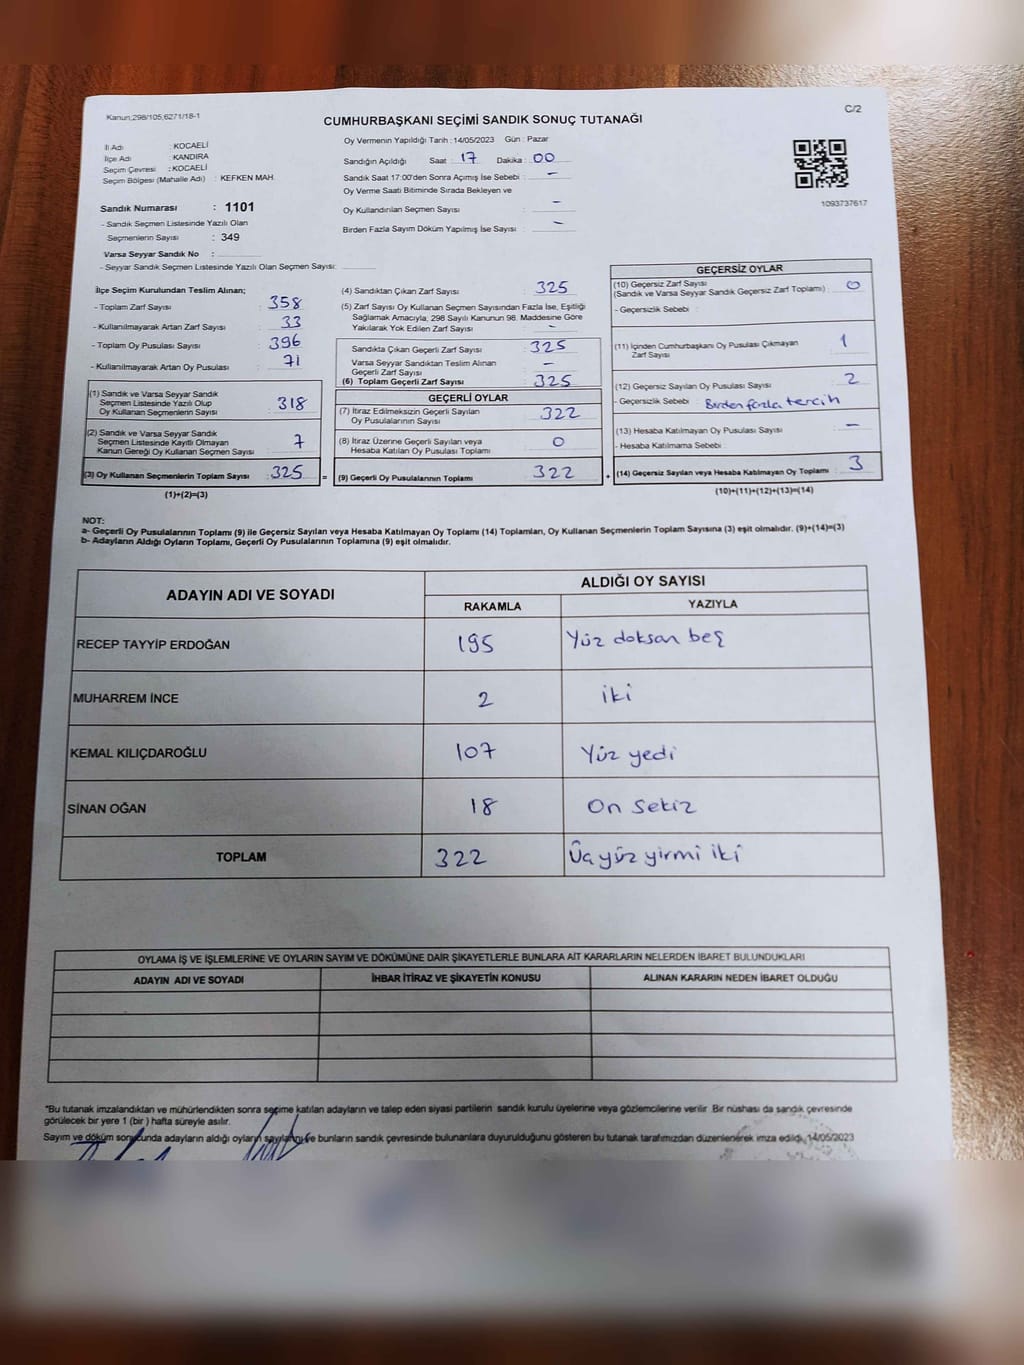 Kanun;298/105,6271/18-1
C/2
CUMHURBAŞKANI SEÇİMİ SANDIK SONUÇ TUTANAĞI
İl Adı : KOCAELİ
İlçe Adı : KANDIRA
Seçim Çevresi : KOCAELİ
Seçim Bölgesi (Mahalle Adı) : KEFKEN MAH.
Sandık Numarası : 1101
- Sandık Seçmen Listesinde Yazılı Olan
Seçmenlerin Sayısı : 349
Varsa Seyyar Sandık No :
- Seyyar Sandık Seçmen Listesinde Yazılı Olan Seçmen Sayısı:
Oy Vermenin Yapıldığı Tarih : 14/05/2023 Gün : Pazar
Sandığın Açıldığı Saat : 17 Dakika : 00
Sandık Saat 17:00'den Sonra Açımış İse Sebebi : -
Oy Verme Saati Bitiminde Sırada Bekleyen ve
Oy Kullandırılan Seçmen Sayısı : -
Birden Fazla Sayım Döküm Yapılmış İse Sayısı : -
1093737617
İlçe Seçim Kurulundan Teslim Alınan;
- Toplam Zarf Sayısı : 358
- Kullanılmayarak Artan Zarf Sayısı : 33
- Toplam Oy Pusulası Sayısı : 396
- Kullanılmayarak Artan Oy Pusulası : 71
(1) Sandık ve Varsa Seyyar Sandık
Seçmen Listesinde Yazılı Olup
Oy Kullanan Seçmenlerin Sayısı : 318
(2) Sandık ve Varsa Seyyar Sandık
Seçmen Listesinde Kayıtlı Olmayan
Kanun Gereği Oy Kullanan Seçmen Sayısı : 7
(3) Oy Kullanan Seçmenlerin Toplam Sayısı : 325 =
(1)+(2)=(3)
(4) Sandıktan Çıkan Zarf Sayısı : 325
(5) Zarf Sayısı Oy Kullanan Seçmen Sayısından Fazla İse, Eşitliği
Sağlamak Amacıyla, 298 Sayılı Kanunun 98. Maddesine Göre
Yakılarak Yok Edilen Zarf Sayısı : -
Sandıkta Çıkan Geçerli Zarf Sayısı : 325
Varsa Seyyar Sandıktan Teslim Alınan
Geçerli Zarf Sayısı : -
(6) Toplam Geçerli Zarf Sayısı : 325
GEÇERLİ OYLAR
(7) İtiraz Edilmeksizin Geçerli Sayılan
Oy Pusulalarının Sayısı : 322
(8) İtiraz Üzerine Geçerli Sayılan veya
Hesaba Katılan Oy Pusulası Toplamı : 0
(9) Geçerli Oy Pusulalarının Toplamı : 322 +
GEÇERSİZ OYLAR
(10) Geçersiz Zarf Sayısı
(Sandık ve Varsa Seyyar Sandık Geçersiz Zarf Toplamı) : 0
- Geçersizlik Sebebi :
(11) İçinden Cumhurbaşkanı Oy Pusulası Çıkmayan
Zarf Sayısı : 1
(12) Geçersiz Sayılan Oy Pusulası Sayısı : 2
- Geçersizlik Sebebi : Birden fazla tercih
(13) Hesaba Katılmayan Oy Pusulası Sayısı : -
- Hesaba Katılmama Sebebi :
(14) Geçersiz Sayılan veya Hesaba Katılmayan Oy Toplamı : 3
(10)+(11)+(12)+(13)=(14)
NOT:
a- Geçerli Oy Pusulalarının Toplamı (9) ile Geçersiz Sayılan veya Hesaba Katılmayan Oy Toplamı (14) Toplamları, Oy Kullanan Seçmenlerin Toplam Sayısına (3) eşit olmalıdır. (9)+(14)=(3)
b- Adayların Aldığı Oyların Toplamı, Geçerli Oy Pusulalarının Toplamına (9) eşit olmalıdır.
ADAYIN ADI VE SOYADI
ALDIĞI OY SAYISI
RAKAMLA YAZIYLA
RECEP TAYYİP ERDOĞAN 195 Yüz doksan beş
MUHARREM İNCE 2 iki
KEMAL KILIÇDAROĞLU 107 Yüz yedi
SİNAN OĞAN 18 On Sekiz
TOPLAM 322 Üç yüz yirmi iki
OYLAMA İŞ VE İŞLEMLERİNE VE OYLARIN SAYIM VE DÖKÜMÜNE DAİR ŞİKAYETLERLE BUNLARA AİT KARARLARIN NELERDEN İBARET BULUNDUKLARI
ADAYIN ADI VE SOYADI İHBAR İTİRAZ VE ŞİKAYETİN KONUSU ALINAN KARARIN NEDEN İBARET OLDUĞU
*Bu tutanak imzalandıktan ve mühürlendikten sonra seçime katılan adayların ve talep eden siyasi partilerin sandık kurulu üyelerine veya gözlemcilerine verilir. Bir nüshası da sandık çevresinde
görülecek bir yere 1 (bir) hafta süreyle asılır.
Sayım ve döküm sonucunda adayların aldığı oyların sayılarını ve bunların sandık çevresinde bulunanlara duyurulduğunu gösteren bu tutanak tarafımızdan düzenlenerek imza edildi. 14/05/2023